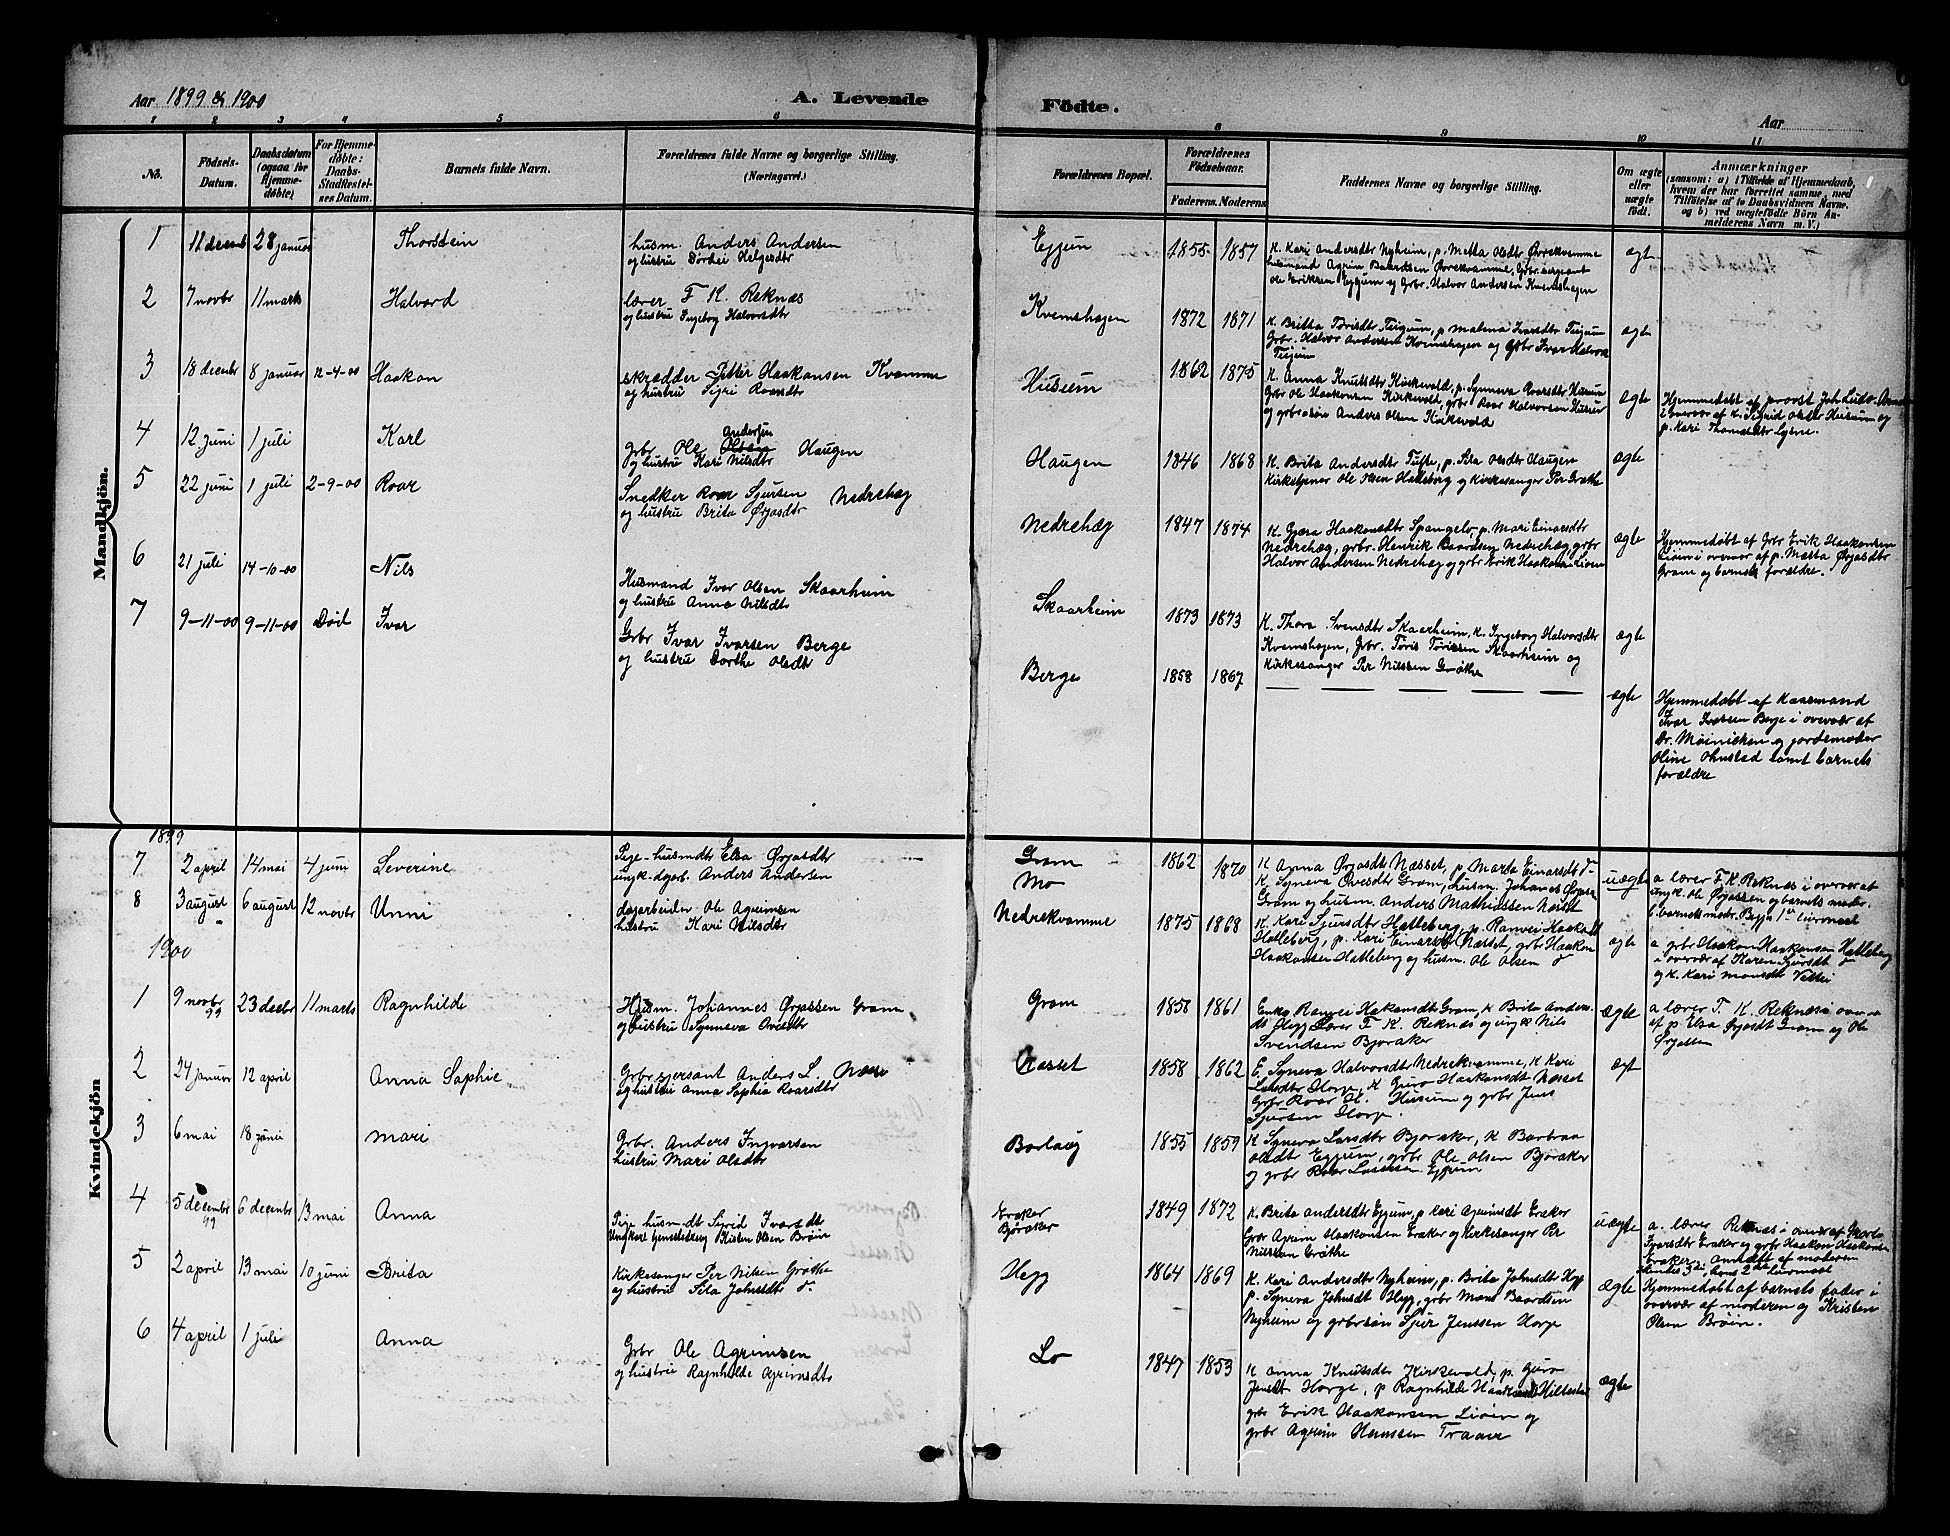 Aar 1899 & 1900
A. Levende
Födte.
Aar
1 2 3 4 5 6 8 9 10 11
No.
Födsels-
Datum.
Daabsdatum
(ogsaa for
Hjemme-
døbte)
For Hjemme-
døbte:
Daabs-
Stadfæstel-
ses Datum.
Barnets fulde Navn.
Forældrenes fulde Navne og borgerlige Stilling.
(Næringsvei.)
Forældrenes Bopæl.
Forældrenes
Födselsaar.
Faderens. Moderens
Faddernes Navne og borgerlige Stilling.
Om ægte
eller
uægte
födt.
Anmærkninger
(saasom: a) I Tilfælde af Hjemmedaab,
hvem der har forrettet samme, med
Tilföielse af to Daabsvidners Navne.
og b) ved uægtefödte Börn An-
melderens Navn m. V.)
Mandkjön.
1 11 decemb 28 januar Thorstein
husm. Anders Andersen
og hustru Dorthei Helgesdtr
Eggum 1855 1857
K. Kari Andersdtr Nyheim, p. Metta Olsdtr Øvrekvamme
husmand Agrim Baardsen Øvrekvamme, Grbr sergeant
Ole Eriksen Eggum og Grbr. Halvor Andersen Kvemshagen
ægt
2 7 novbr 11 marts Halvard
lærer F. K. Reknæs
og hustru Ingeborg Halvorsdtr
Kvemshagen 1872 1871
K. Britta Torisdtr Tugum, p. Malena Ivarsdtr Tugum
Grbr. Halvor Andersen Kvemshagen og Grbr Ivar Halvors
Tugum
ægte
3 18 decembr 8 januar 12-4-00 Haakon
skrædder Petter Haakonsen Kvamme
og hustru Sigri Roarsdtr
Husum 1862 1875
K. Anna Knutsdtr Kirkevold, p. Synneva Roarsdtr Husum
Grbr Ole Haakonsen Kirkevold, grbr Roar Halvorsen Husum
og grbrsøn Anders Olsen Kirkevold
ægte
Hjemmedøbt af provst Joh. Ludv.
i overvær af K. Sigrid Olsdtr Husum og
p. Kari Thomasdtr Lysne.
4 12 juni 1 juli Karl
Andersen
Grbr Ole Olsen Haugen
og hustru Kari Nilsdtr
Haugen 1846 1868
K. Brita Andersdtr Tufte, p. Sita Olsdtr Haugen
Kirketjener Ole Olsen Hatleberg og Kirkesanger Per Grøthe
ægte
5 22 juni 1 juli 2-9-00 Roar
Snedker Roar Sjursen Nedrehæg
og hustru Brita Ørjasdtr
Nedrehæg 1847 1874
K. Gjøra Haakonsdtr Spangelo, p. Mari Einarsdtr
Nedrehæg, grbr. Henrik Baardsen Nedrehæg, grbr
Halvor Andersen Nedrehæg og grbr Erik Haakonsen Lioen
ægte
Hjemmedøbt af Grbr Erik Haakonsen
Lioen i overvær af p. Marta Ørjasdtr
Gram og barnets forældre.
6 21 juli 14-10-00 Nils
Husmand Ivar Olsen Skaarheim
og hustru Anna Nilsdtr
Skaarheim 1873 1873
K. Thora Svensdtr Skaarheim, K. Ingeborg Halvorsdtr
Kvemshagen, Grbr. Toris Torissen Skaarheim og
Kirkesanger Per Nilssen Grøthe
ægte
7 9-11-00 9-11-00 Død Ivar
Grbr Ivar Ivarsen Berge
og hustru Dorthe Olsdt
Berge 1858 1867
ægte
Hjemmedøbt af Kaarmand
Ivar Iversen Berge i overvær af
Dr. Møinicken og jordemoder
Oline Ohnstad samt barnets
forældre
Kvindekjön
1899
7 2 april 14 mai 4 juni Severine
Pige-husmdtr Elsa Ørjasdtr
ungk.-dgarb. Anders Andersen
Gram
Mo
1862 1870
K Anna Ørjasdt Næsset, p. Marta Einarsdt do
K. Syneva Ovesdtr Gram, husm. Johanes Ørjasen
Gram og husm. Anders Mathiassen Næsset
uægte
a lærer F. K. Reknæs i overvær af
ungk. Ole Ørjassen og barnets moder.
b. barnets moder. Begge 1ste leiermaal
8 3 august 6 august 12 novbr Unni
dagarbeider Ole Agrimsen
hustru Kari Nilsdtr
Nedrekvamme 1875 1868
K. Kari Sjursdtr Hatleberg, p. Ranvei Haakdt
Hatleberg, p. Kari Einarsdt Næsset, grbr Haakon
Haakonsen Hatleberg og husm. Ole Olsen do
ægte
a grbr Haakon Haakonsen Hatleberg
i overvær af Karen Sjursdt do
og K. Kari Monsdt Vettei
1900
1 9 novbr 99 23 decbr 11 marts Ragnhilde
Husm. Johannes Ørjassen Gram
og hustru Synneva Ovesdtr
Gram 1858 1861
Enke Ranvei Hakonsdt Gram, K Brita Anders-
dt Hegg, Lærer F. K. Reknæs og ungk Nils
Svendsen Bjoraker
ægte
a lærer F. K. Reknæs i overvær
af p. Elsa Ørjasdt Gram og Ole
Ørjassen
2 24 januar 12 april Anna Sophie
Grbr sersant Anders L. Næsse
og hustru Anna Sophia Roarsdtr
Næsset 1858 1862
E. Syneva Halvorsdt Nedrekvamme, K Kari
Larsdtr Horge, K Guro Haakonsdt Næsset
Grbr Roar H. Husum og grbr Jens
Sjursen Horge.
ægt
3 6 mai 18 juni Mari
Grbr. Anders Ingvarsen
hustru Mari Olsdtr
Borlaug 1855 1859
K Syneva Larsdtr Bjoraker, K Barbraa
Olsdt Eggum, grbr Ole Olsen Bjoraker
og grbr Roar Larssen Eggum
4 5 decembr 99 6 decembr 13 mai Anna
Pige husm-dt Sigrid Ivarsdt
Ungkarl Kristen Olsen Brøin
Eraker
Bjøraker
1849 1872
K. Brita Andersdt Eggum, p Kari Agrimsdt Eraker
Grbr Agrim Haakonsen Eraker og Kirkesanger Per
Nilssen Grøthe
uægte
a. lærer Reknæs i overv. af Marta
Ivarsdtr Eraker og grbr Haakon Haakonsen
Eraker. Anmeldt af moderen
Hendes 3die, hans 2det leiermaal
5 2 april 13 mai 10 juni Brita
Kirkesanger Per Nilsen Grøthe
og hustru Sita Johnsdtr do
Hegg 1864 1869
K. Kari Andersdtr Nyheim, p. Brita Johnsdt Hegg
p. Syneva Johnsdt Hegg, grbr Mons Baardsen
Nyheim og grbrsøn Sjur Jenssen Horge
ægte
Hjemmedøbt af barnets fader i
overvær af moderen og Kristen
Olsen Brøin.
6 4 april 1 juli Anna
Grbr Ole Agrimsen
og hustru Ragnhilde Agrimsdtr
Lo 1847 1853
K Anna Knutsdtr Kirkevold, p. Guro
Jensdt Horge, p Ragnhilde Haakonsdt
grbr Erik Haakonsen Lioen og
grbr Agrim Hermssen Traaer
ægte